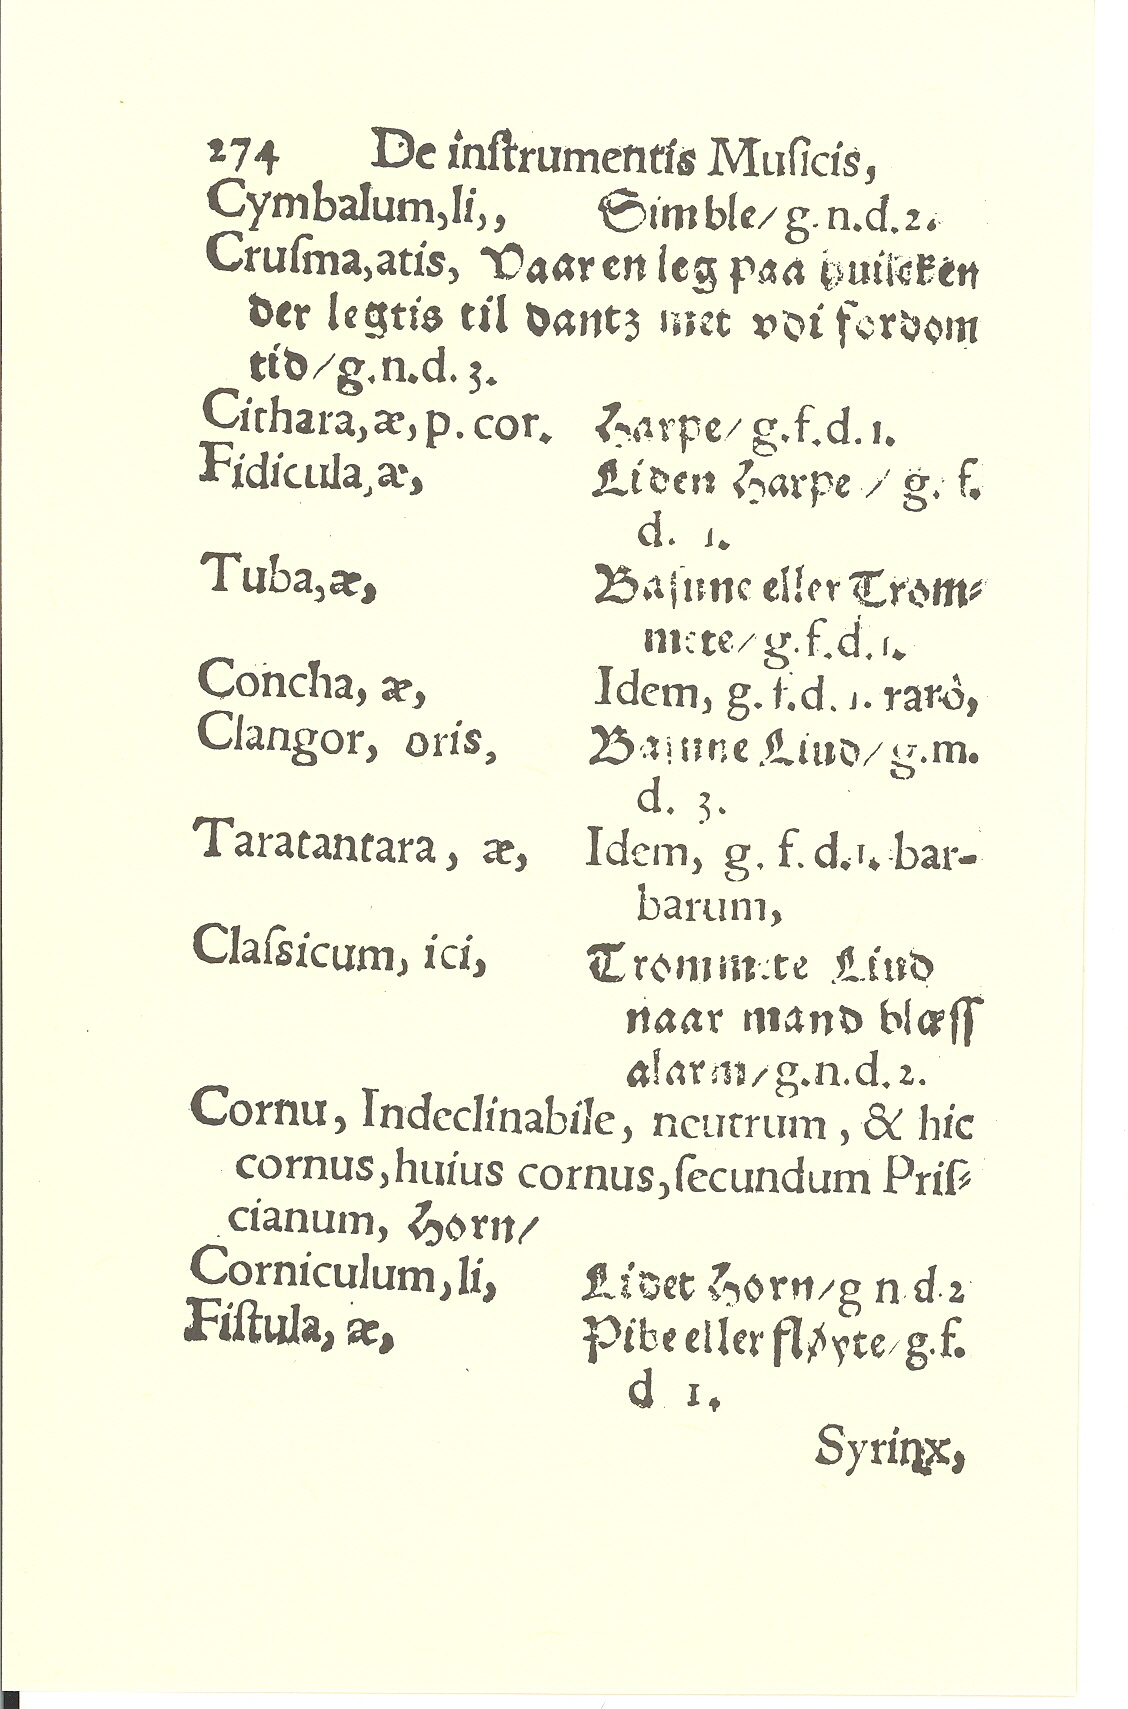 274 De inſtrumentis Muſicis,
Cymbalum,li,, Simble/ g.n.d.2.
Cruſma,atis, Vaar en leg paa huilcken
der legtis til dantz met vdi fordom
tid/g.n.d.3.
Cithara,æ,p.cor. Harpe/ g.f.d.1.
Fidicula,æ, Liden Harpe / g. f.
d. 1.
Tuba,æ, Baſune eller Trom⸗
mete/g.f.d.1.
Concha, æ, Idem, g. f.d. 1. rarò,
Clangor, oris, Baſune Liud/g.m.
d. 3.
Taratantara, æ, Idem, g. f.d.1. bar-
barum,
Claſsicum, ici, Trommete Liud
naar mand blæſſ
alarm/g.n.d.2.
Cornu, Indeclinabile, neutrum, & hic
cornus,huius cornus,ſecundum Priſ⸗
cianum, Horn/
Corniculum,li, Lidet Horn/g n.d.2
Fiſtula, æ, Pibe eller fløyte/g.f.
d 1.
Syrinx,